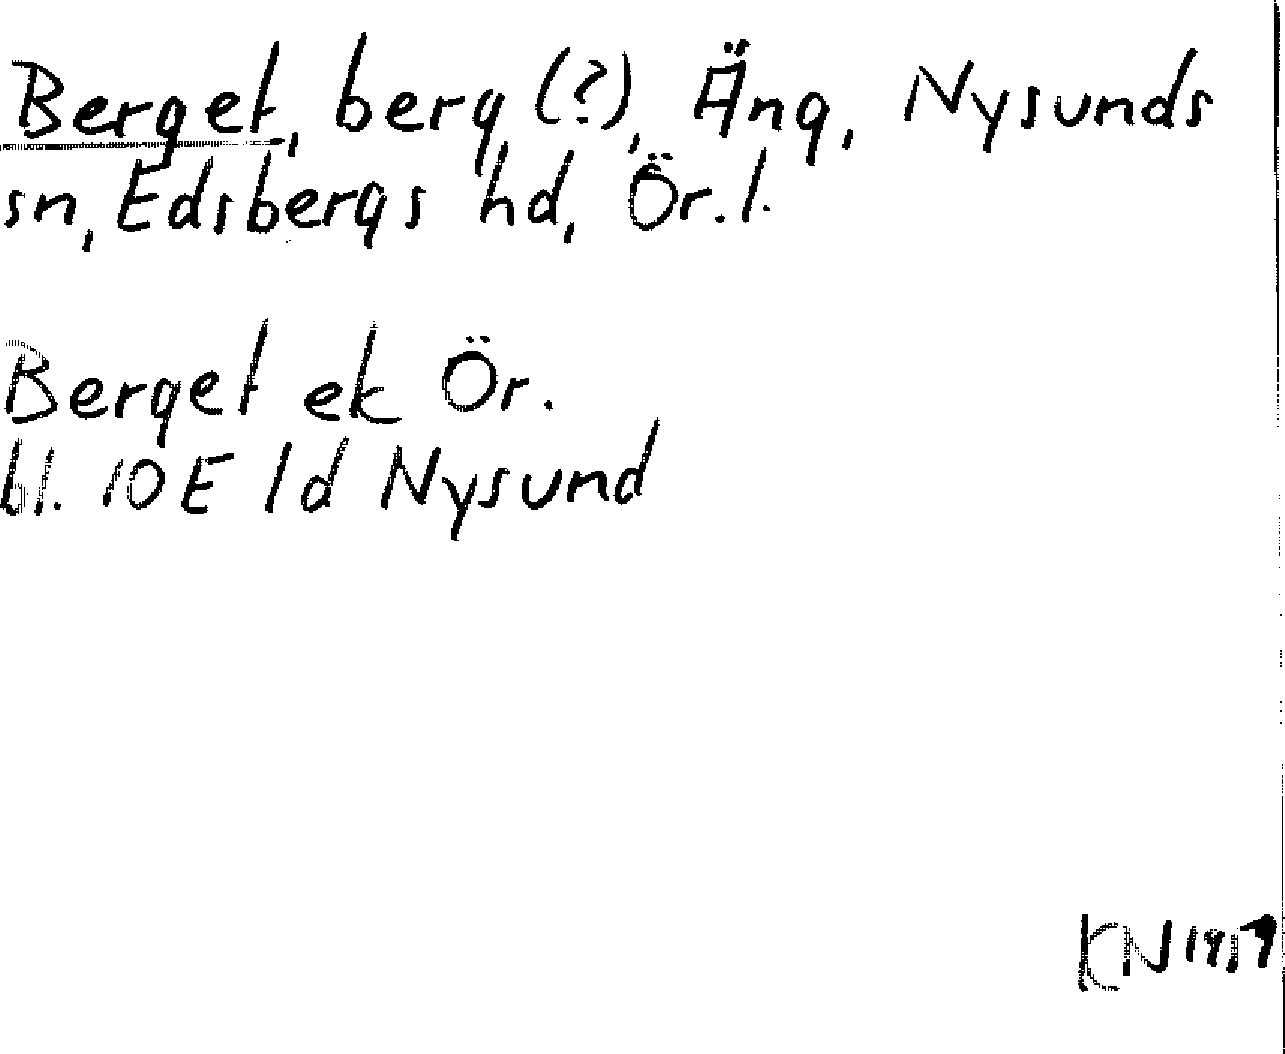 Berget, berg (?), Äng, Nysunds
sn, Edsbergs hd, Ör. l.
Berget ek Ör.
bl. 10E 1d Nysund
KN